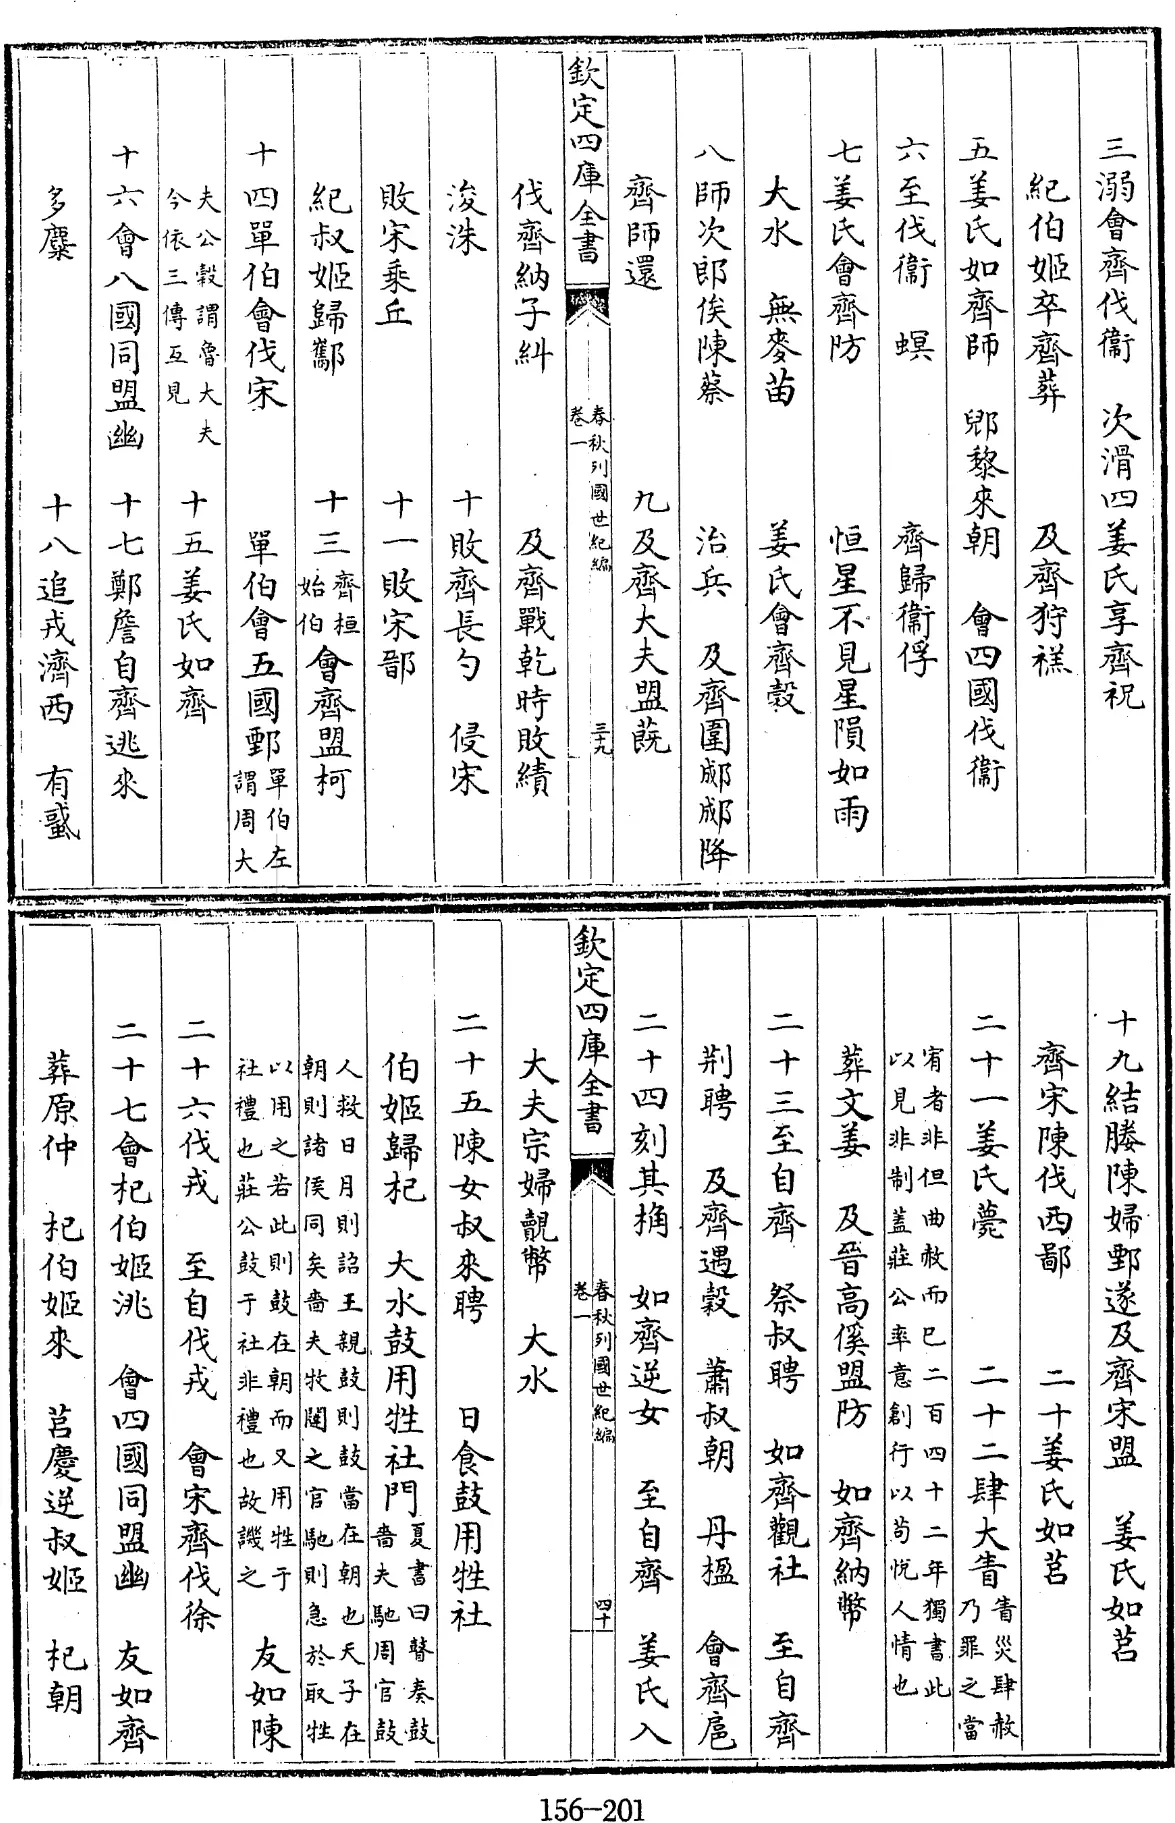 三溺會齊伐衞　次滑四姜氏享齊祝
紀伯姬卒齊葬　及齊狩禚
五姜氏如齊師　郳黎來朝　會四國伐衞
六至伐衞　螟　齊歸衞俘
七姜氏會齊防　恒星不見星隕如雨
大水　無麥苗　姜氏會齊穀
八師次郎俟陳蔡　治兵　及齊圍郕郕降
齊師還　九及齊大夫盟蔇
欽定四庫全書　春秋列國世紀編卷一　三十九
伐齊納子糾　及齊戰乾時敗績
浚洙　十敗齊長勺　侵宋
敗宋乘丘　十一敗宋鄑
紀叔姬歸酅　十三齊桓始伯會齊盟柯
十四單伯會伐宋　單伯會五國鄄單伯左謂周大
夫公穀謂魯大夫今依三傳互見　十五姜氏如齊
十六會八國同盟幽　十七鄭詹自齊逃來
多麋　十八追戎濟西　有蜮
十九結媵陳婦鄄遂及齊宋盟　姜氏如莒
齊宋陳伐西鄙　二十姜氏如莒
二十一姜氏薨　二十二肆大眚眚災肆赦乃罪之當
宥者非但曲赦而已二百四十二年獨書此以見非制蓋莊公率意創行以苟悅人情也
葬文姜　及晉高傒盟防　如齊納幣
二十三至自齊　祭叔聘　如齊觀社　至自齊
荆聘　及齊遇穀　蕭叔朝　丹楹　會齊扈
二十四刻其桷　如齊逆女　至自齊　姜氏入
欽定四庫全書　春秋列國世紀編卷一　四十
大夫宗婦覿幣　大水
二十五陳女叔來聘　日食鼓用牲社
伯姬歸杞　大水鼓用牲社門夏書曰瞽奏鼓嗇夫馳周官鼓
人救日月則詔王親鼓則鼓當在朝也天子在朝則諸侯同矣嗇夫牧閽之官馳則急於取牲
以用之若此則鼓在朝而又用牲于社禮也莊公鼓于社非禮也故譏之　友如陳
二十六伐戎　至自伐戎　會宋齊伐徐
二十七會杞伯姬洮　會四國同盟幽　友如齊
葬原仲　杞伯姬來　莒慶逆叔姬　杞朝
156-201